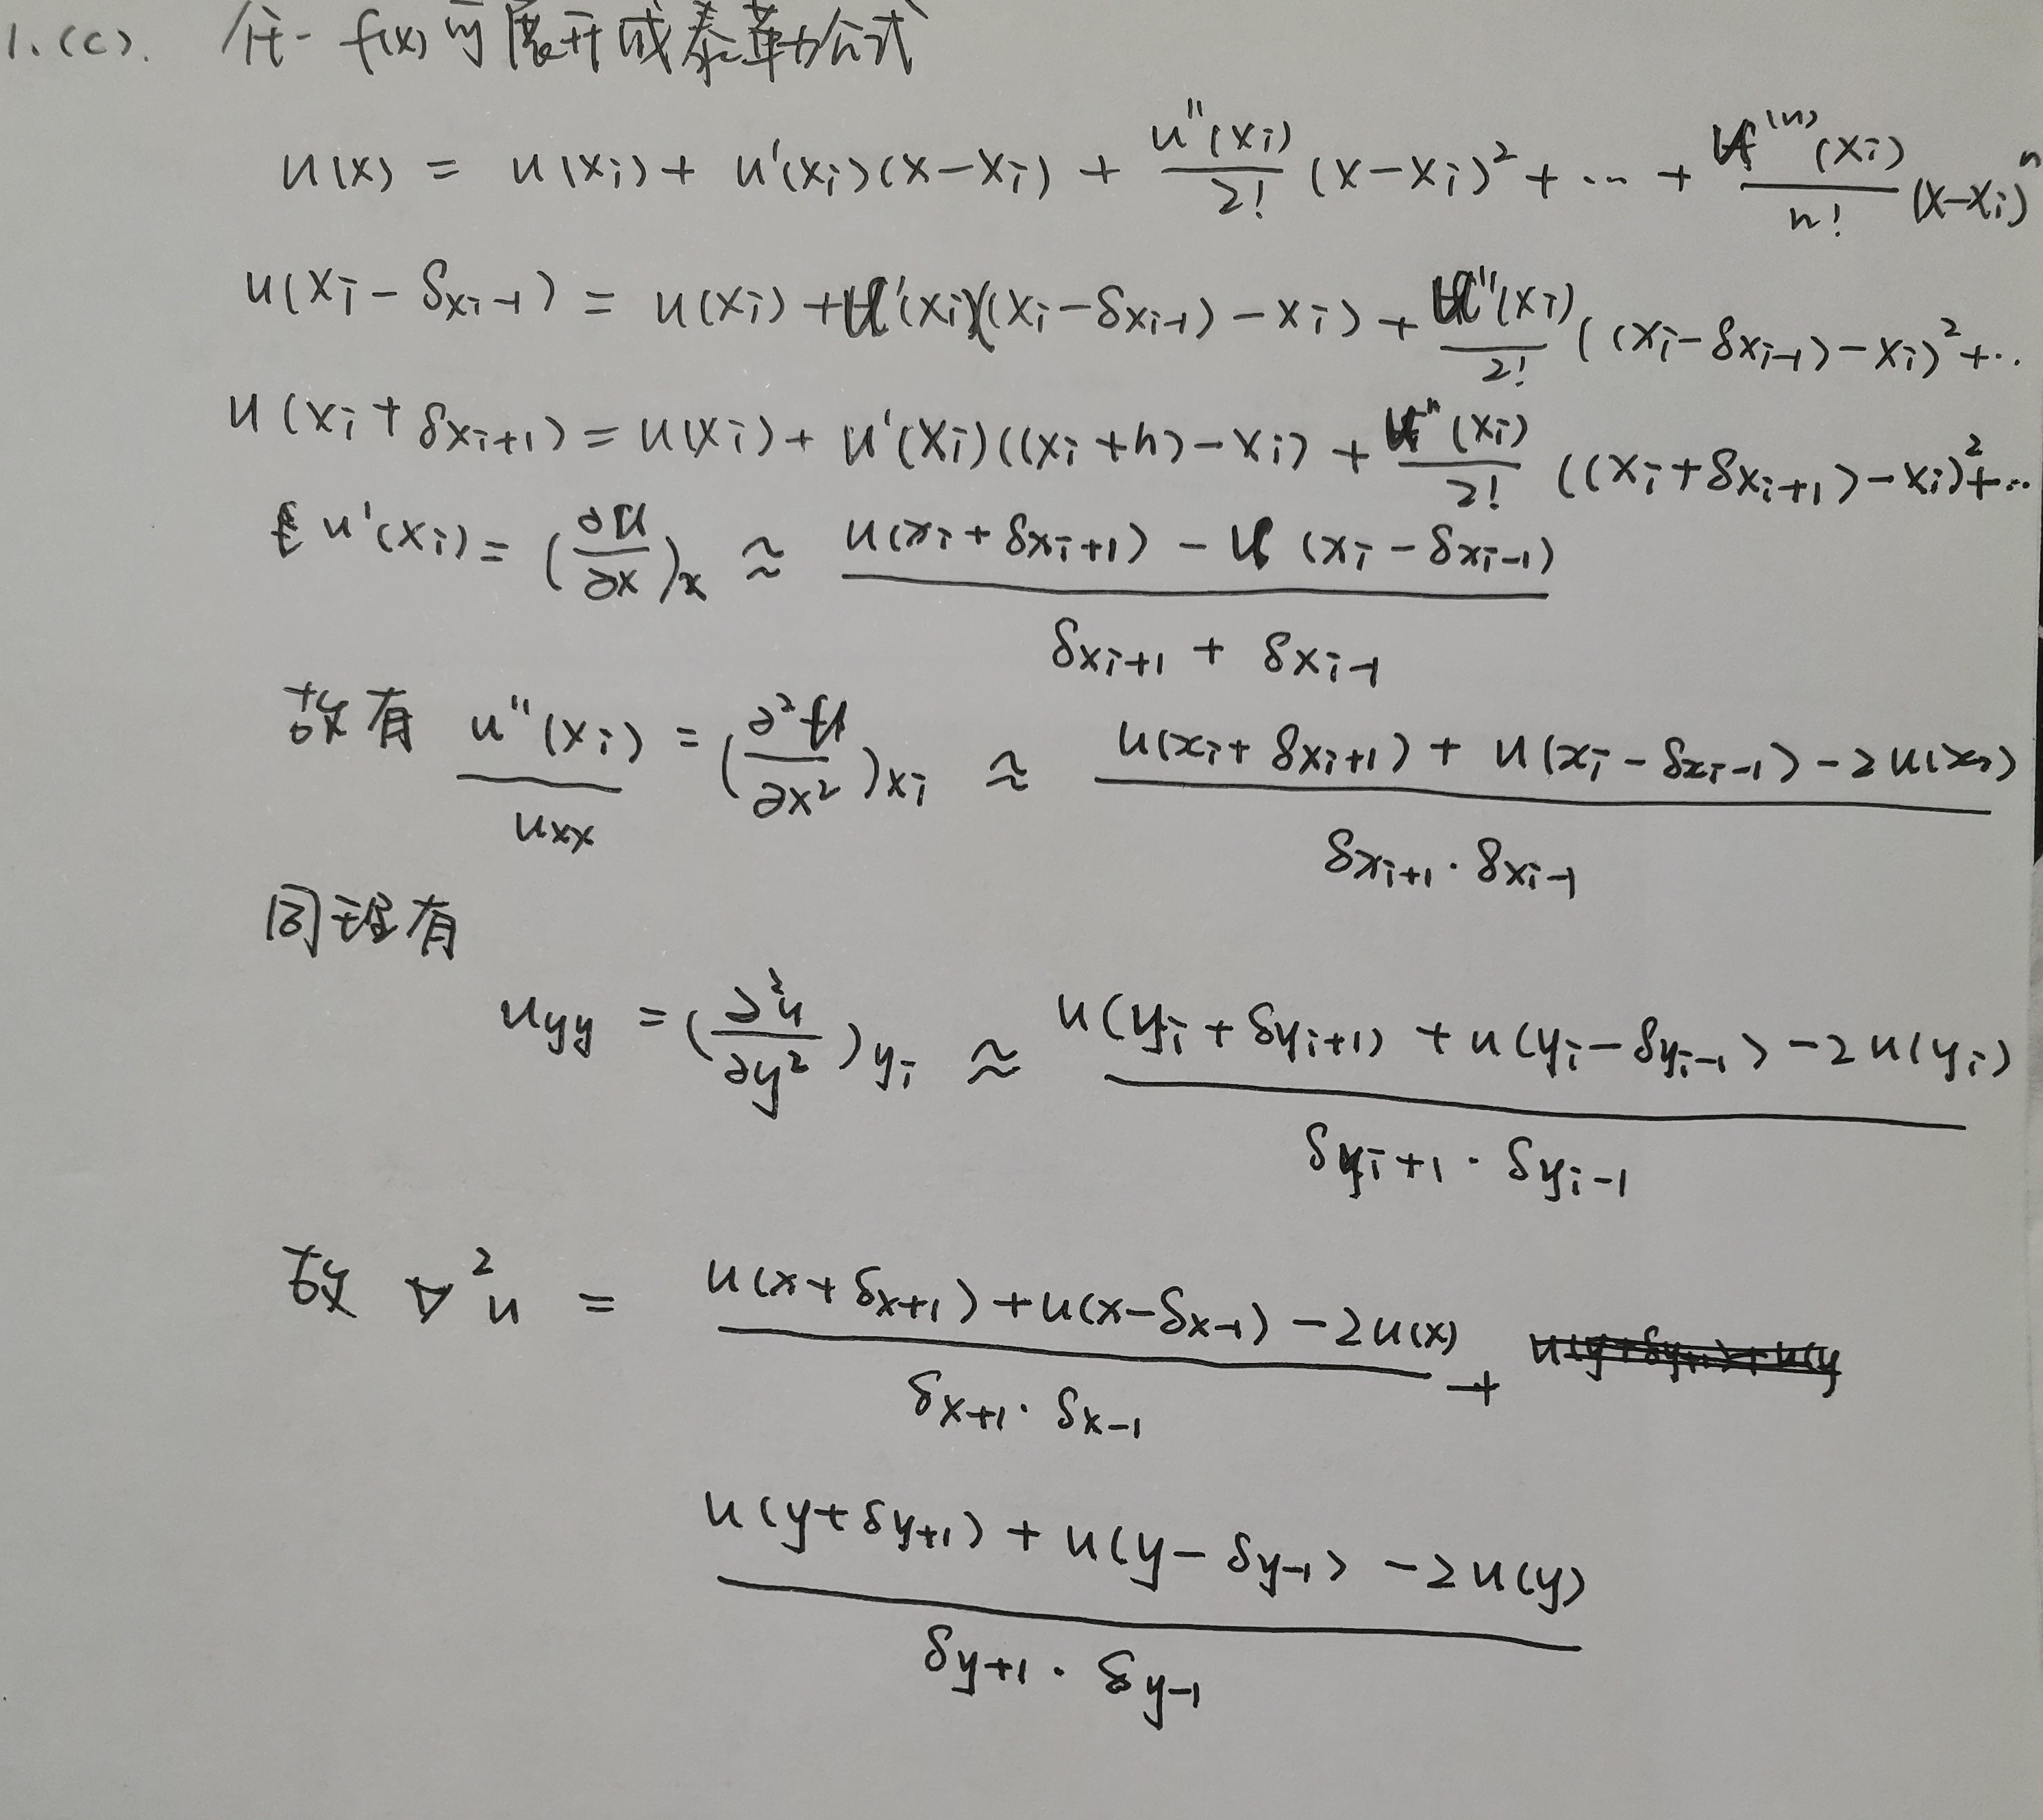 1.(c). 任一 f(x) 可展开成泰勒公式
u(x) = u(xi) + u'(xi)(x-xi) + u''(xi)/2! (x-xi)² + ... + u⁽ⁿ⁾(xi)/n! (x-xi)ⁿ
u(xi - δxi-1) = u(xi) + u'(xi)((xi-δxi-1)-xi) + u''(xi)/2! ((xi-δxi-1)-xi)² + ...
u(xi + δxi+1) = u(xi) + u'(xi)((xi+h)-xi) + u''(xi)/2! ((xi+δxi+1)-xi)² + ...
u'(xi) = (∂u/∂x)x ≈ (u(xi+δxi+1) - u(xi-δxi-1)) / (δxi+1 + δxi-1)
故有 u''(xi) = (∂²u/∂x²)xi ≈ (u(xi+δxi+1) + u(xi-δxi-1) - 2u(xi)) / (δxi+1 · δxi-1)
uxx
同理有
uyy = (∂²u/∂y²)yi ≈ (u(yi+δyi+1) + u(yi-δyi-1) - 2u(yi)) / (δyi+1 · δyi-1)
故 ∇²u = (u(x+δx+1) + u(x-δx-1) - 2u(x)) / (δx+1 · δx-1) +
(u(y+δy+1) + u(y-δy-1) - 2u(y)) / (δy+1 · δy-1)